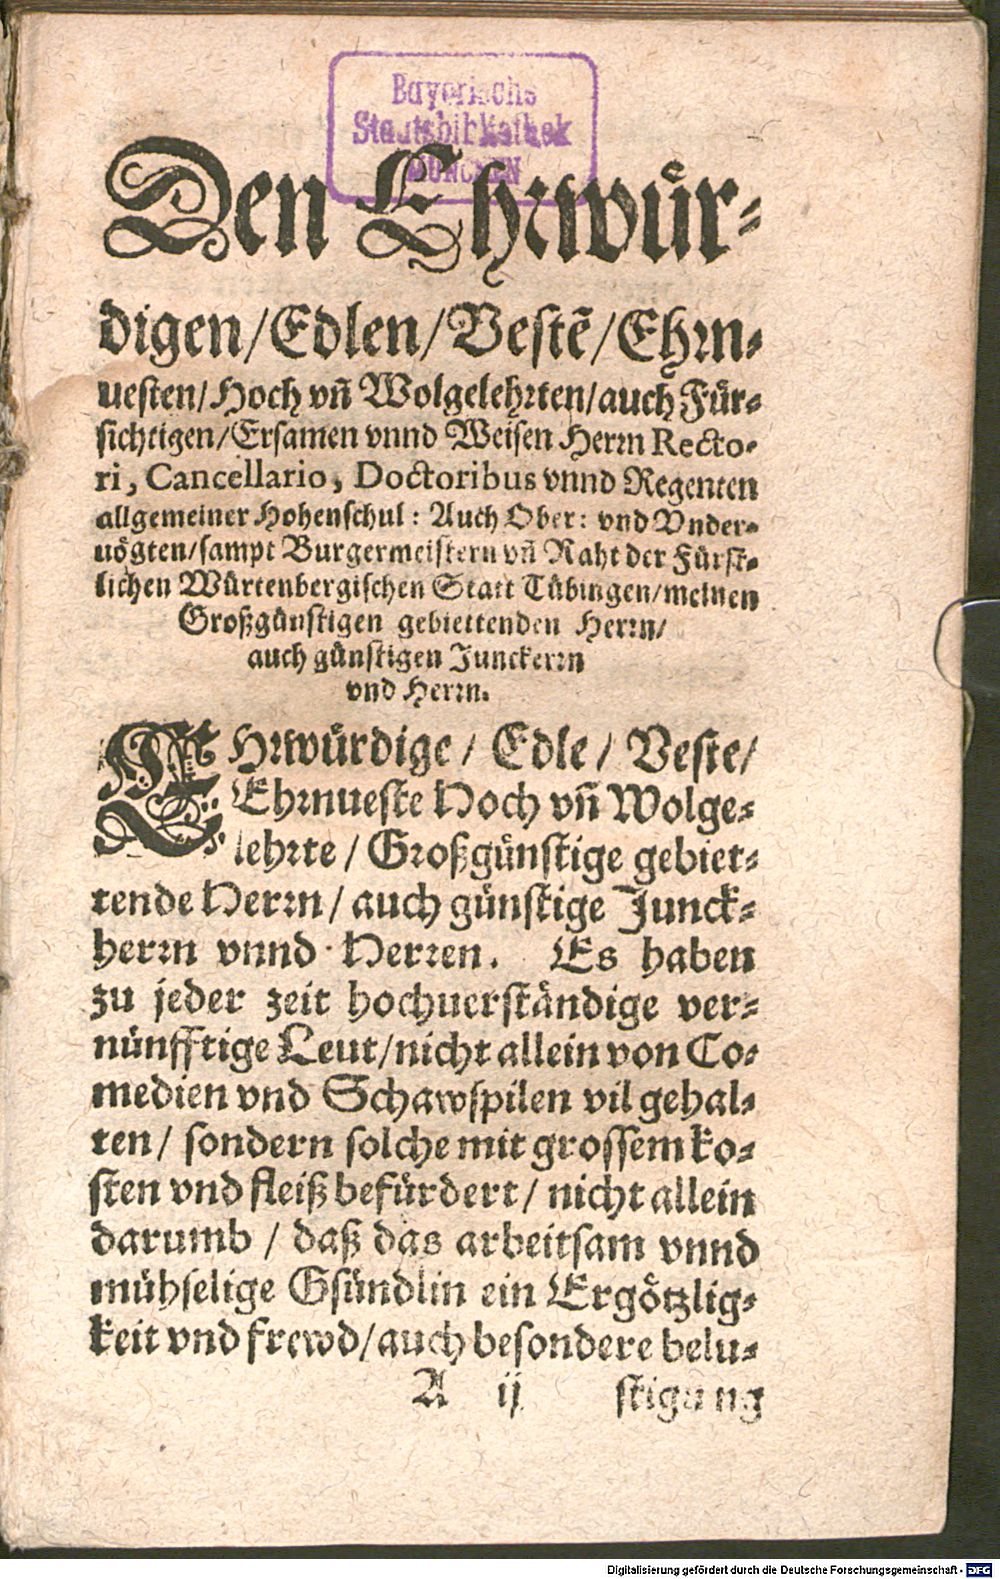 Bayerische
Staatsbibliothek
MÜNCHEN
Den Ehrwuͤr-
digen/Edlen/Vestẽ/Ehrn-
uesten/Hoch vñ Wolgelehrten/auch Fuͤr-
sichtigen/Ersamen vnnd Weisen Herrn Recto-
ri, Cancellario, Doctoribus vnnd Regenten
allgemeiner Hohenschul: Auch Ober: vnd Vnder-
uoͤgten/sampt Burgermeistern vñ Raht der Fuͤrst-
lichen Wuͤrtenbergischen Statt Tuͤbingen/meinen
Großguͤnstigen gebiettenden Herrn/
auch guͤnstigen Junckerrn
vnd Herrn.
EHrwuͤrdige / Edle / Veste/
Ehrnueste Hoch vñ Wolge-
lehrte / Großguͤnstige gebiet-
tende Herrn / auch guͤnstige Junck-
herrn vnnd Herren. Es haben
zu jeder zeit hochuerstaͤndige ver-
nuͤnfftige Leut/nicht allein von Co-
medien vnd Schawspilen vil gehal-
ten / sondern solche mit grossem ko-
sten vnd fleiß befuͤrdert / nicht allein
darumb / daß das arbeitsam vnnd
muͤhselige Gsuͤndlin ein Ergoͤtzlig-
keit vnd frewd/auch besondere belu-
A ij stigung
Digitalisierung gefördert durch die Deutsche Forschungsgemeinschaft - DFG